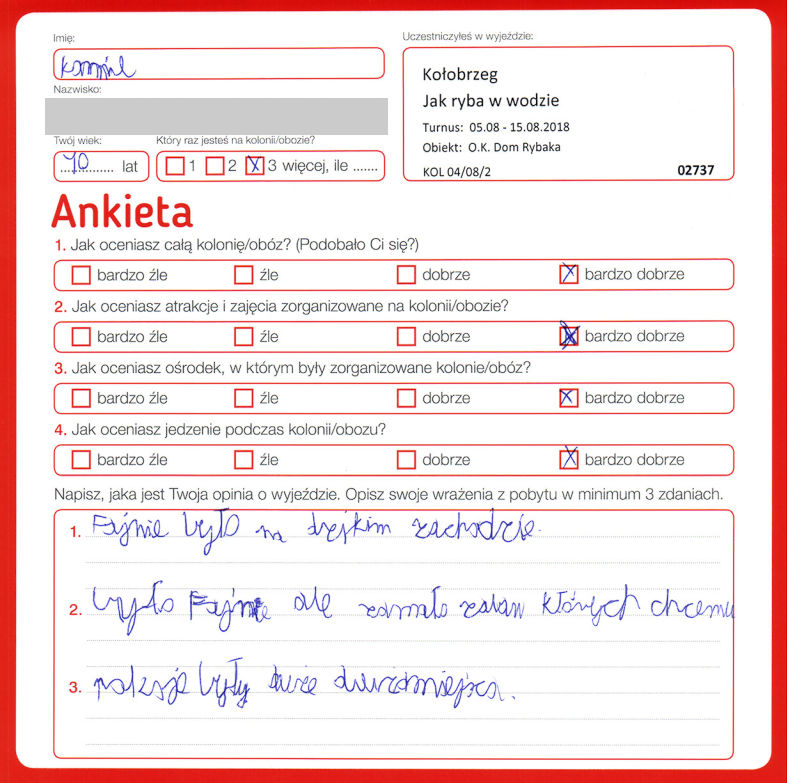 Imię:
Kamil
Nazwisko:
Twój wiek:
10 lat
Który raz jesteś na kolonii/obozie?
1 2 X 3 więcej, ile .......
Uczestniczyłeś w wyjeździe:
Kołobrzeg
Jak ryba w wodzie
Turnus: 05.08 - 15.08.2018
Obiekt: O.K. Dom Rybaka
KOL 04/08/2 02737
Ankieta
1. Jak oceniasz całą kolonię/obóz? (Podobało Ci się?)
bardzo źle źle dobrze X bardzo dobrze
2. Jak oceniasz atrakcje i zajęcia zorganizowane na kolonii/obozie?
bardzo źle źle dobrze X bardzo dobrze
3. Jak oceniasz ośrodek, w którym były zorganizowane kolonie/obóz?
bardzo źle źle dobrze X bardzo dobrze
4. Jak oceniasz jedzenie podczas kolonii/obozu?
bardzo źle źle dobrze X bardzo dobrze
Napisz, jaka jest Twoja opinia o wyjeździe. Opisz swoje wrażenia z pobytu w minimum 3 zdaniach.
1. Fajnie było na dzejkim zachodzie.
2. było Fajnie ale zamało zabaw których chcemy
3. pokoje były duże dużo miejsca.